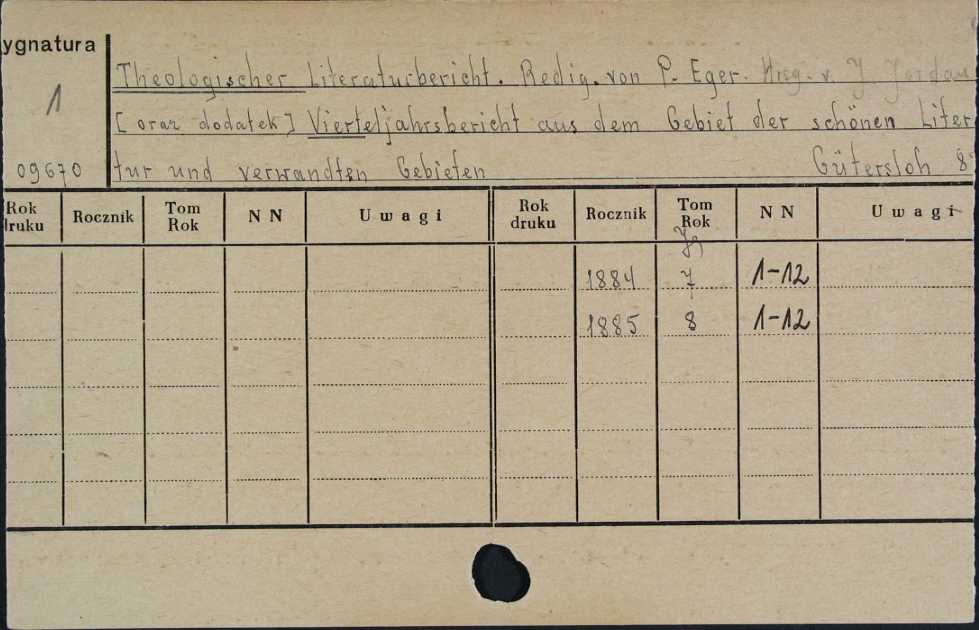 ygnatura
1
09670
Theologischer Literaturbericht. Redig. von P. Eger. Hrsg. v. J. Jordan
[oraz dodatek] Vierteljahrsbericht aus dem Gebiet der schönen Liter
tur und verwandten Gebieten Gütersloh 8°
Rok druku Rocznik Tom Rok NN Uwagi Rok druku Rocznik Tom Rok NN Uwagi
Jg
1884 7 1-12
1885 8 1-12